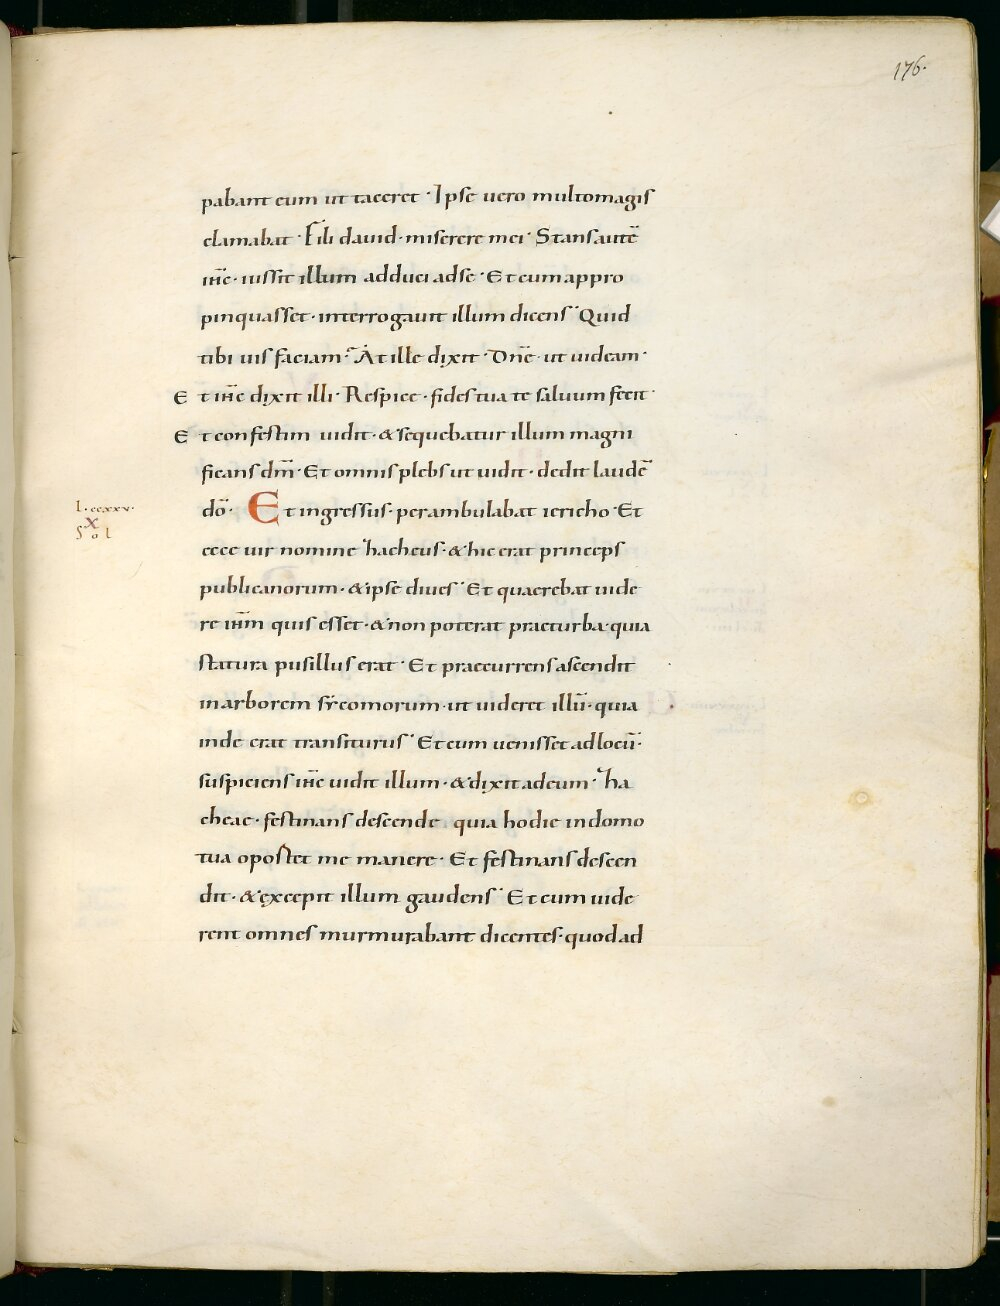 176.
pabant eum ut taceret · Ipse uero multomagis
clamabat · Fili dauid · miserere mei · Stans autē
ih̄c · iussit illum adduci adse · Et cum appro
pinquasset · interrogauit illum dicens · Quid
tibi uis faciam · At ille dixit · Dn̄e · ut uideam ·
Et ih̄c dixit illi · Respice · fides tua te saluum fecit ·
Et confestim uidit · & sequebatur illum magni
ficans dm̄ · Et omnis plebs ut uidit · dedit laudē
dō · Et ingressus · perambulabat iericho · Et
L · ccxxv ·
X
S o l
ecce uir nomine hacheus · & hic erat princeps
publicanorum · & ipse diues · Et quaerebat uide
re ih̄m quis esset · & non poterat praeturba · quia
statura pusillus erat · Et praecurrens ascendit
inarborem sycomorum · ut uideret illū · quia
inde erat transiturus · Et cum uenisset adlocū ·
suspiciens ih̄c uidit illum · & dixit adeum · ha
cheae · festinans descende quia hodie indomo
tua oportet me manere · Et festinans descen
dit · & excepit illum gaudens · Et cum uide
rent omnes murmurabant dicentes · quod ad